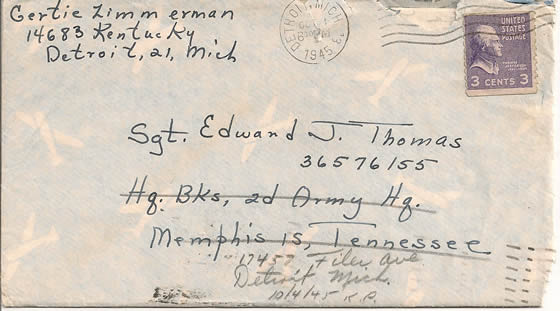 Gertie Zimmerman
14683 Kentucky
Detroit, 21, Mich
DETROIT, MICH.
1945
UNITED
STATES
POSTAGE
3 CENTS 3
Sgt. Edward J. Thomas
36576155
Hq. Bks, 2d Army Hq.
Memphis 15, Tennessee
17457 Filer Ave
Detroit Mich.
10/4/45 K.P.